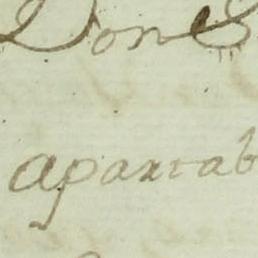 Done
apartab